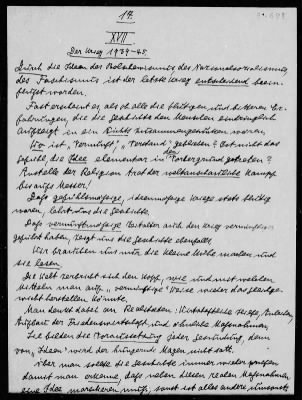 17.
XVII
Der Krieg 1939-45.
Durch die Ideen des Bolschewismus des Nationalsozialismus,
des Faschismus ist der letzte Krieg entscheidend beein-
flusst worden.
Fast erscheint es, als ob alle die blutigen und bitteren Er-
fahrungen, die die Geschichte den Menschen eindringlich
aufzeigt in ein Nichts zusammengesunken waren.
Wo ist "Vernunft", "Verstand" geblieben? Hat nicht das
Gefühl, die Idee elementar in den Vordergrund getreten?
Anstelle der Religion trat der weltanschauliche Kampf
bis aufs Messer!
Dass gefühlsmässige, ideenmässige Kriege stets blutig
waren, lehrt uns die Geschichte.
Dass vernunftmässige Gestalten auch den Krieg vernünftig
geführt haben, zeigt uns die Geschichte ebenfalls.
Wir brauchten uns nur die kleine Mühe machen und
sie lesen.
Die Welt zerbricht sich den Kopf, wie und mit welchen
Mitteln man auf "vernünftige" Weise wieder das Gleichge-
wicht herstellen könnte.
Man denkt dabei an Realitäten: Wirtschaftliche Hilfe, Anleihen,
Aufbau der Friedenswirtschaft, und ähnliche Massnahmen.
Sie bilden die Voraussetzung jeder Gesundung, denn
von "Ideen" wird der hungernde Magen nicht satt.
Aber man sollte die Geschichte immer wieder fragen
damit man erkenne, dass neben diesen realen Massnahmen
eine Idee marschieren muss, sonst ist alles andere umsonst